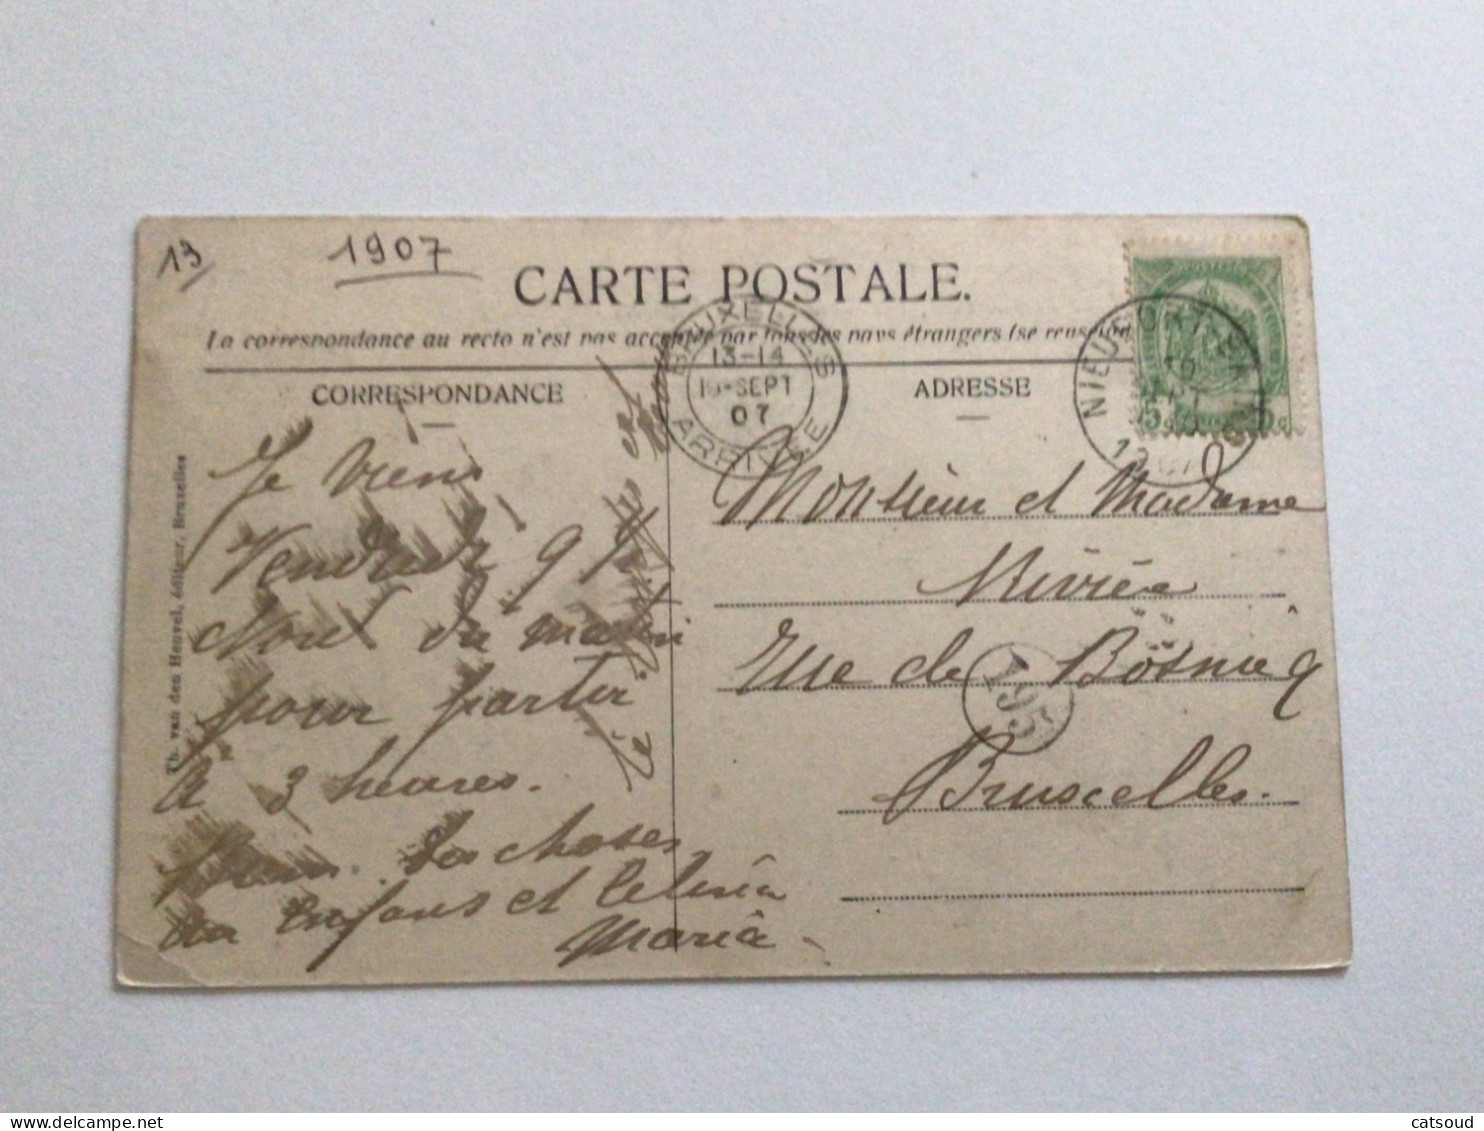 13
1907
CARTE POSTALE.
La correspondance au recto n'est pas acceptée par tous les pays étrangers (se renseigner
CORRESPONDANCE
ADRESSE
BRUXELLES
13-14
SEPT
07
ARRIVÉE
NIEUPORT
5c 5c
Th. van den Heuvel, éditeur, Bruxelles
Je viens
Vendredi 9
du matin
pour partir
à 3 heures.
des choses
enfans et
Maria
Monsieur et Madame
Rivière
Rue de
195
Bruxelles.
catsoud